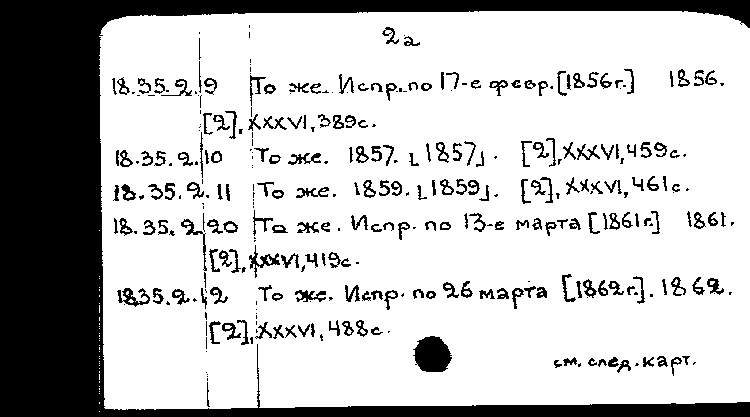 2а
18.35.2.9 То же. Испр. по 17-е февр. [1856г.] 1856.
[2], XXXVI, 389с.
18.35.2.10 То же. 1857. ⌊1857⌋. [2], XXXVI, 459с.
18.35.2.11 То же. 1859. ⌊1859⌋. [2], XXXVI, 461с.
18.35.2.20 То же. Испр. по 13-е марта [1861г.] 1861.
[2], XXXVI, 419с.
1835.2.12 То же. Испр. по 26 марта [1862г.]. 1862.
[2], XXXVI, 488с.
см. след. карт.